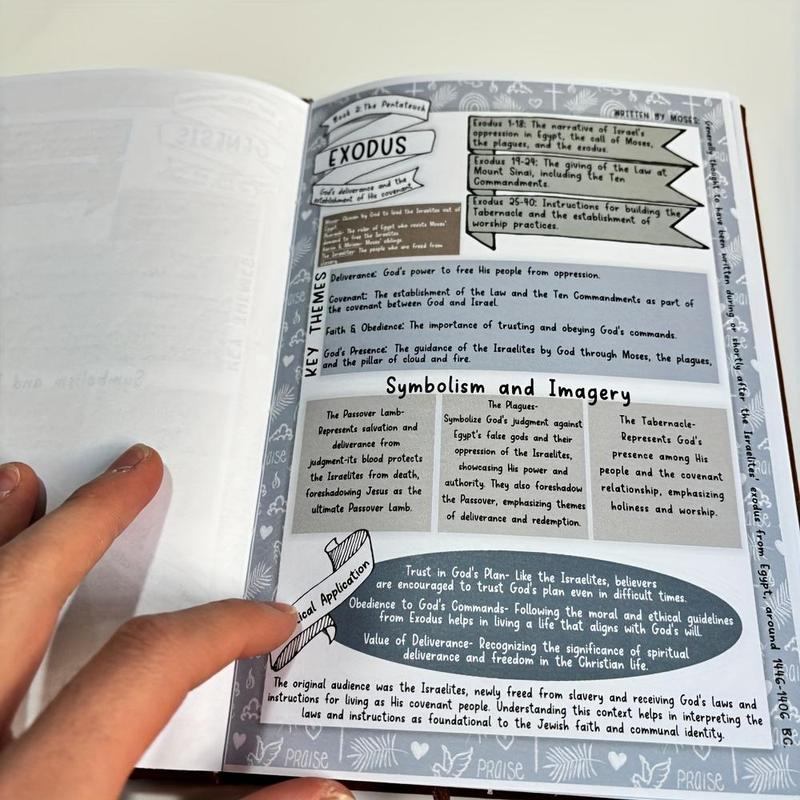 Book 2: The Pentateuch
EXODUS
God's deliverance and the
establishment of His covenant
WRITTEN BY MOSES:
Generally thought to have been written during or shortly after the Israelites' exodus from Egypt, around 1446-1406 BC
Exodus 1-18: The narrative of Israel's
oppression in Egypt, the call of Moses,
the plagues, and the exodus.
Exodus 19-24: The giving of the Law at
Mount Sinai, including the Ten
Commandments.
Exodus 25-40: Instructions for building the
Tabernacle and the establishment of
worship practices.
Moses: Chosen by God to lead the Israelites out of
Egypt.
Pharaoh: The ruler of Egypt who resists Moses'
demand to free the Israelites.
Aaron & Miriam: Moses' siblings.
The Israelites: The people who are freed from
slavery.
KEY THEMES
Deliverance: God's power to free His people from oppression.
Covenant: The establishment of the Law and the Ten Commandments as part of
the covenant between God and Israel.
Faith & Obedience: The importance of trusting and obeying God's commands.
God's Presence: The guidance of the Israelites by God through Moses, the plagues,
and the pillar of cloud and fire.
Symbolism and Imagery
The Passover Lamb-
Represents salvation and
deliverance from
judgment-its blood protects
the Israelites from death,
foreshadowing Jesus as the
ultimate Passover Lamb.
The Plagues-
Symbolize God's judgment against
Egypt's false gods and their
oppression of the Israelites,
showcasing His power and
authority. They also foreshadow
the Passover, emphasizing themes
of deliverance and redemption.
The Tabernacle-
Represents God's
presence among His
people and the covenant
relationship, emphasizing
holiness and worship.
Application
Trust in God's Plan- Like the Israelites, believers
are encouraged to trust God's plan even in difficult times.
Obedience to God's Commands- Following the moral and ethical guidelines
from Exodus helps in living a life that aligns with God's will.
Value of Deliverance- Recognizing the significance of spiritual
deliverance and freedom in the Christian life.
The original audience was the Israelites, newly freed from slavery and receiving God's laws and
instructions for living as His covenant people. Understanding this context helps in interpreting the
laws and instructions as foundational to the Jewish faith and communal identity.
PRAISE
PRAISE